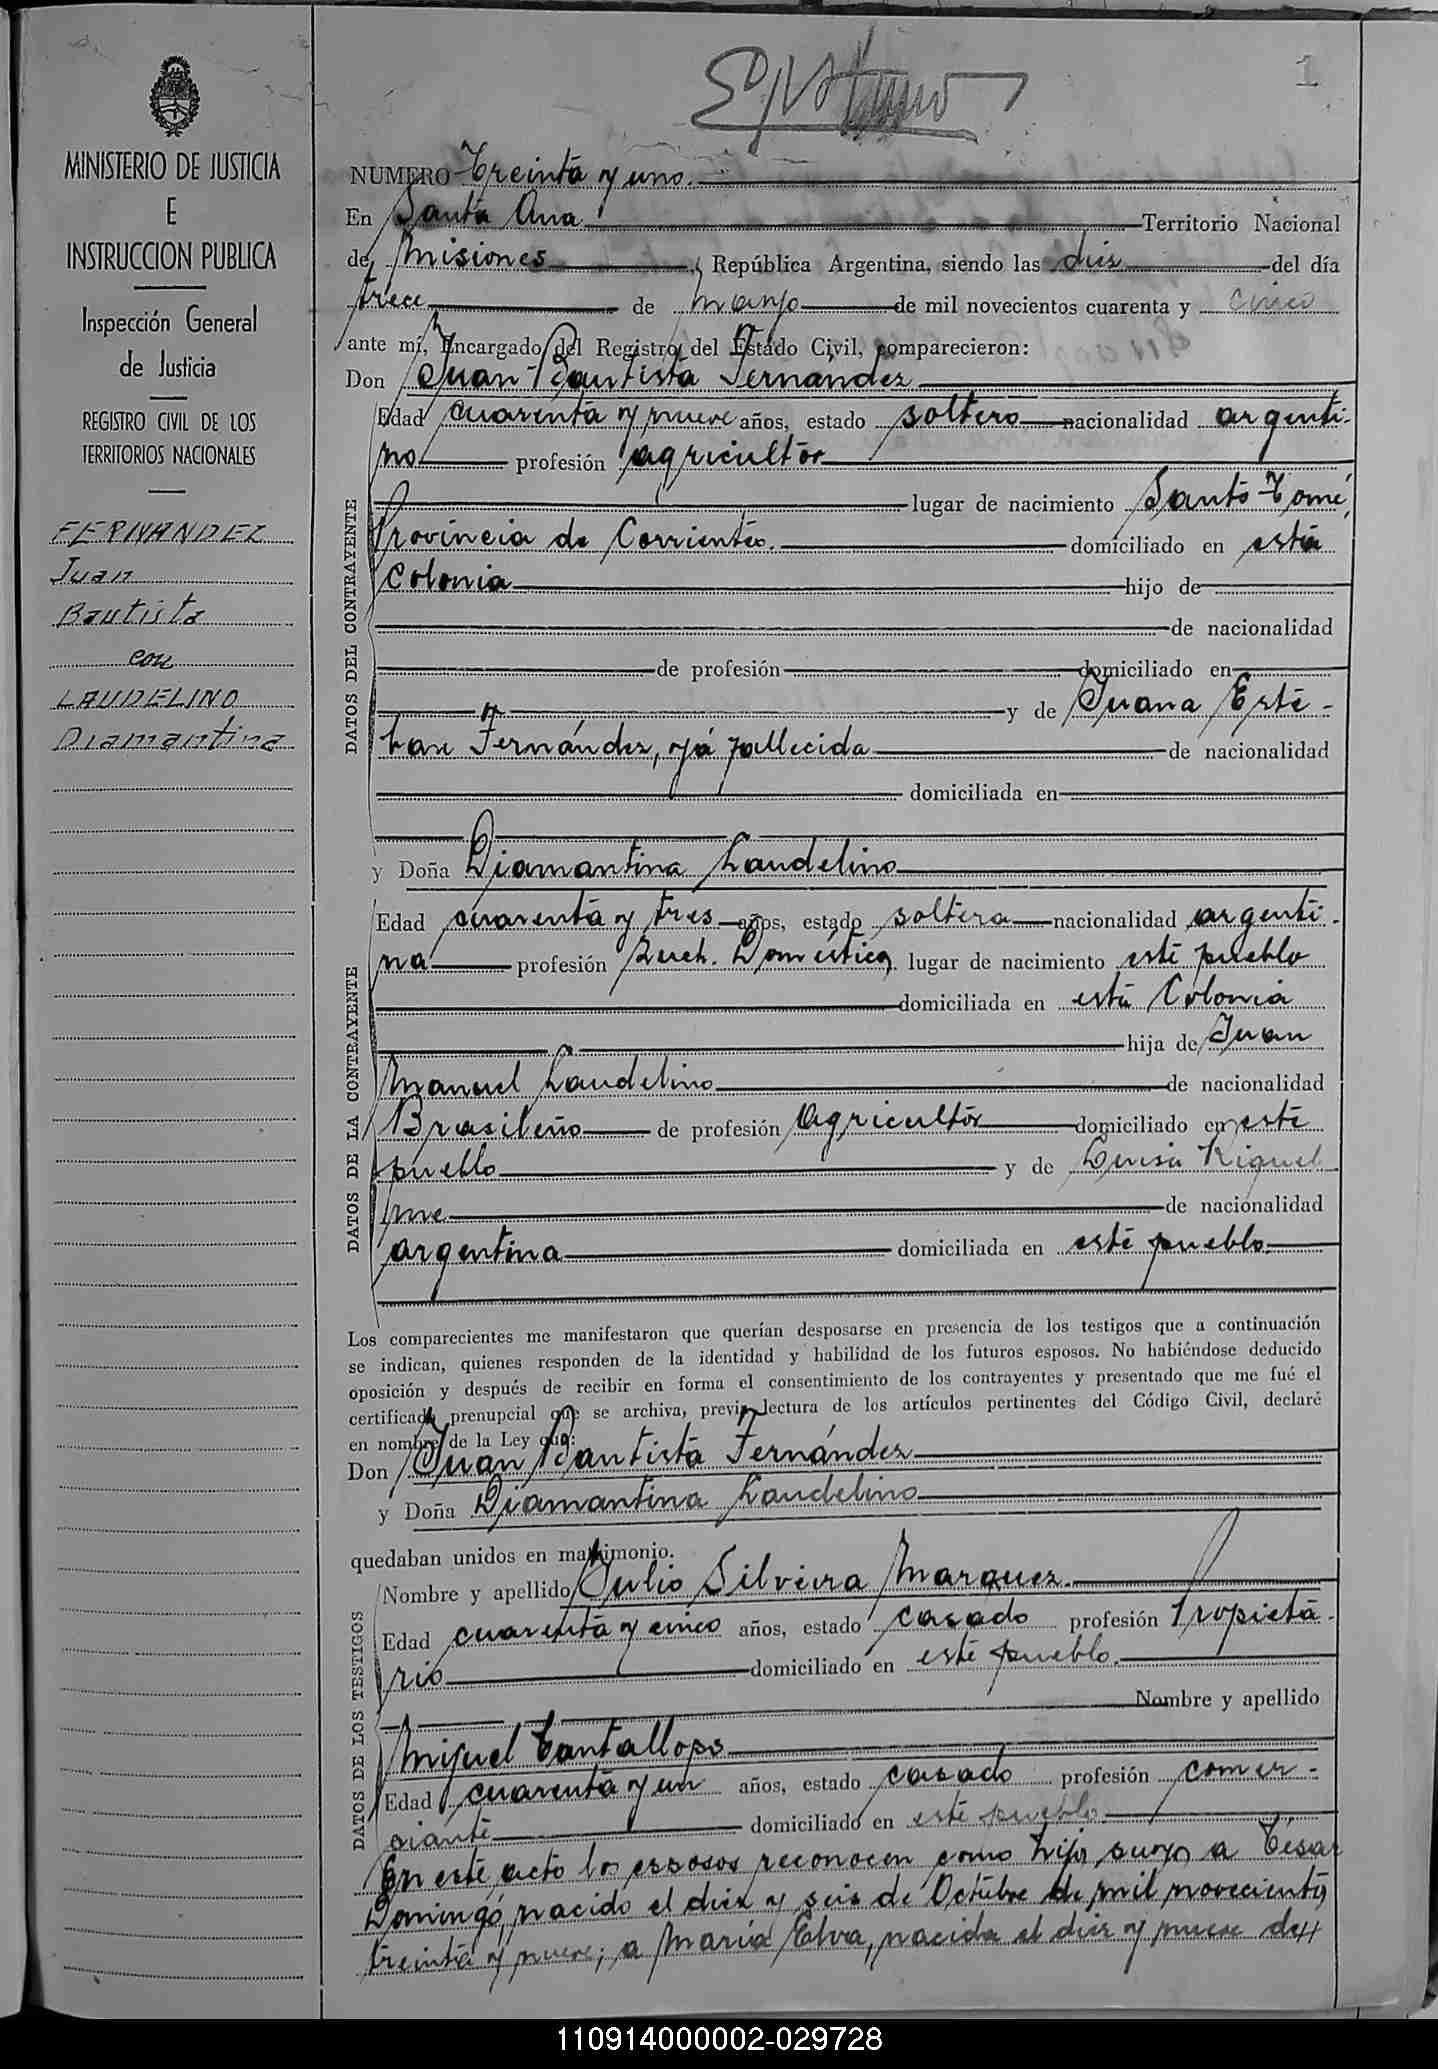 1
MINISTERIO DE JUSTICIA
E
INSTRUCCION PUBLICA
Inspección General
de Justicia
REGISTRO CIVIL DE LOS
TERRITORIOS NACIONALES
FERNANDEZ
Juan
Bautista
con
LAUDELINO
Diamantina
NUMERO Treinta y uno.
En Santa Ana Territorio Nacional
de Misiones, República Argentina, siendo las diez del día
trece de mayo de mil novecientos cuarenta y cinco
ante mí, Encargado del Registro del Estado Civil, comparecieron:
Don Juan Bautista Fernandez
DATOS DEL CONTRAYENTE
Edad cuarenta y nueve años, estado soltero nacionalidad argenti-
no profesión agricultor
lugar de nacimiento Santo Tomé,
Provincia de Corrientes. domiciliado en esta
Colonia hijo de
de nacionalidad
de profesión domiciliado en
y de Juana Este-
fana Fernández, yá fallecida de nacionalidad
domiciliada en
y Doña Diamantina Laudelino
DATOS DE LA CONTRAYENTE
Edad cuarenta y tres años, estado soltera nacionalidad argenti-
na profesión Queh. Doméstico lugar de nacimiento este pueblo
domiciliada en esta Colonia
hija de Juan
Manuel Laudelino de nacionalidad
Brasileño de profesión Agricultor domiciliado en este
pueblo y de Luisa Riquel
me de nacionalidad
argentina domiciliada en este pueblo.
Los comparecientes me manifestaron que querían desposarse en presencia de los testigos que a continuación
se indican, quienes responden de la identidad y habilidad de los futuros esposos. No habiéndose deducido
oposición y después de recibir en forma el consentimiento de los contrayentes y presentado que me fué el
certificado prenupcial que se archiva, previa lectura de los artículos pertinentes del Código Civil, declaré
en nombre de la Ley que:
Don Juan Bautista Fernández
y Doña Diamantina Laudelino
quedaban unidos en matrimonio.
DATOS DE LOS TESTIGOS
Nombre y apellido Julio Silveira Marquez.
Edad cuarenta y cinco años, estado casado profesión Propieta-
rio domiciliado en este pueblo.
Nombre y apellido
Miguel Cantallops
Edad cuarenta y un años, estado casado profesión comer-
ciante domiciliado en este pueblo.
En este acto los esposos reconocen como hijos suyos a César
Domingo, nacido el diez y seis de Octubre de mil novecientos
treinta y nueve; a María Elva, nacida el diez y nueve de
110914000002-029728